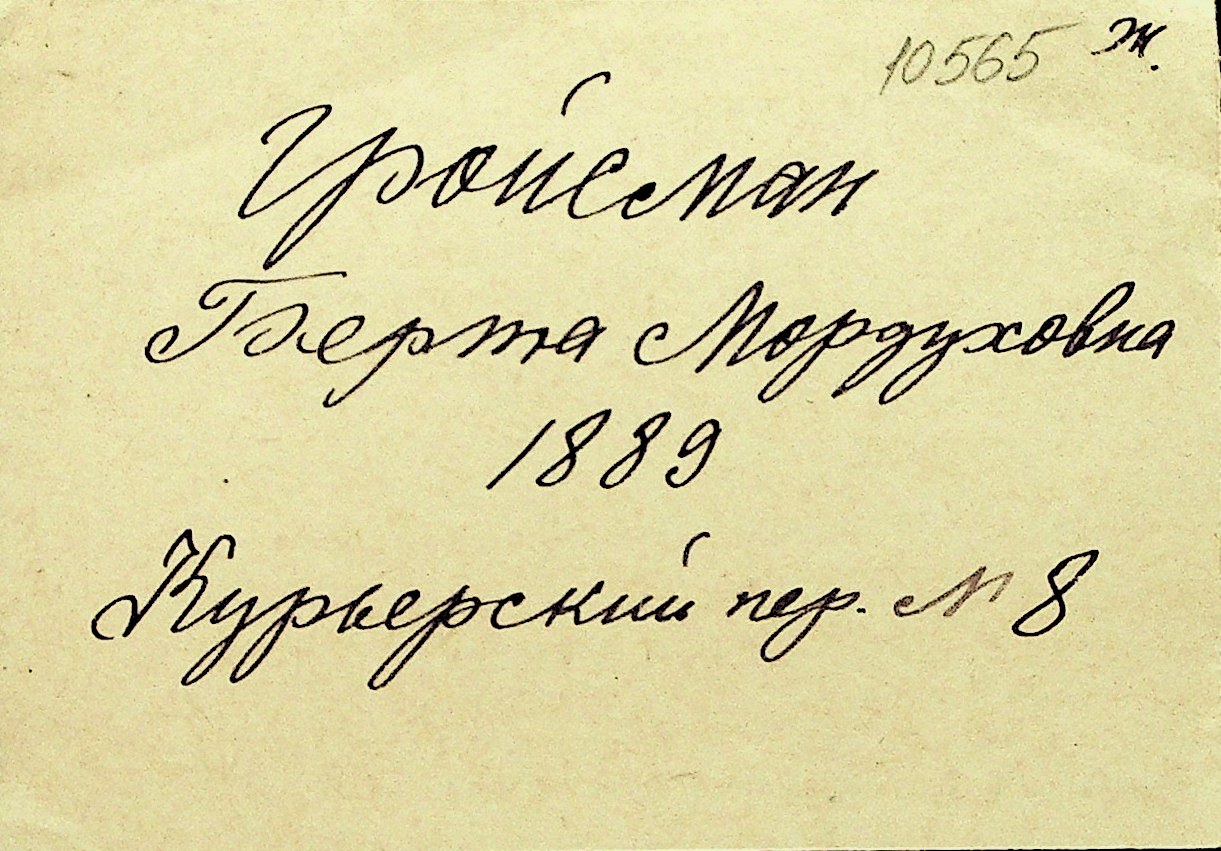 10565 ж.
Гройсман
Берта Мордуховна
1889
Курьерский пер. № 8